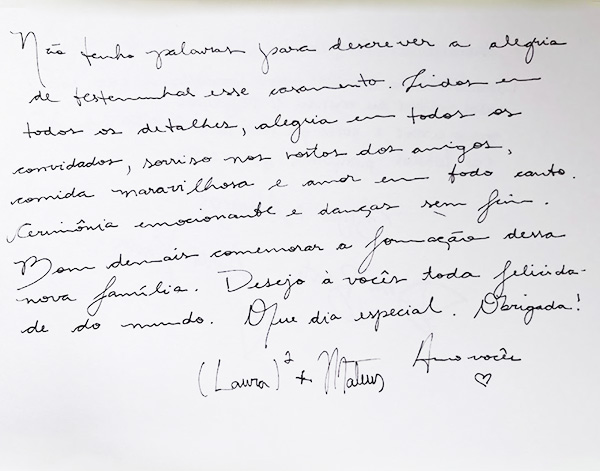 Não tenho palavras para descrever a alegria
de testemunhal esse casamento. Lindos em
todos os detalhes, alegria em todos os
convidados, sorriso nos rostos dos amigos,
comida maravilhosa e amor em todo canto.
Cerimônia emocionante e danças sem fim.
Bom demais comemorar a formação dessa
nova família. Desejo à vocês toda felicida-
de do mundo. Que dia especial. Obrigada!
(Laura)² + Mateus Amo vocês
♡